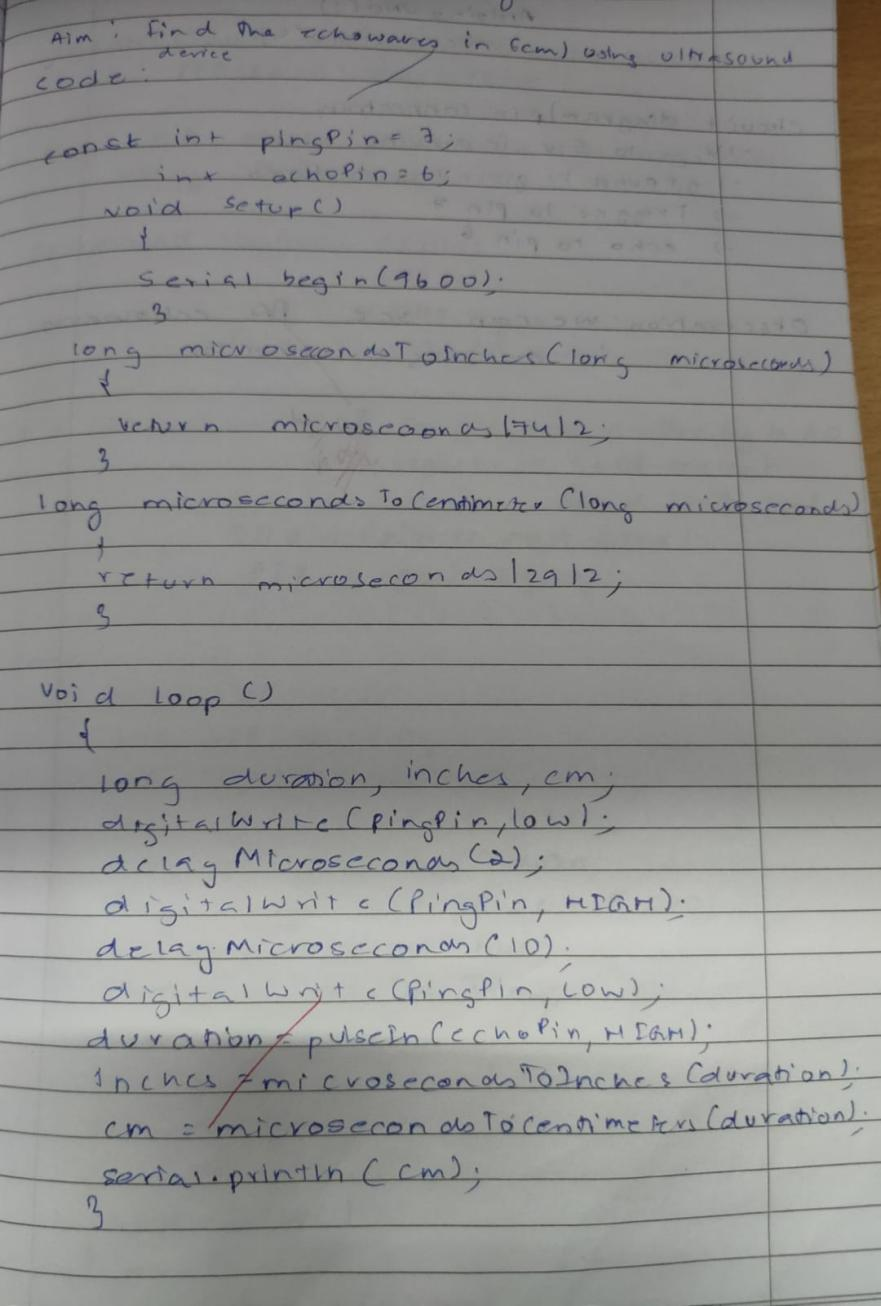 Aim : Find the echowaves in (cm) using ultrasound
device
code :
const int pingPin = 7;
int echoPin = 6;
void setup()
{
Serial begin(9600);
}
long microsecondsToInches (long microseconds)
{
return microseconds/74/2;
}
long microsecondsToCentimeter (long microseconds)
{
return microseconds/29/2;
}
void loop ()
{
long duration, inches, cm;
digitalWrite (pingPin, low);
delay Microseconds (2);
digitalWrite (PingPin, HIGH);
delay Microseconds (10);
digitalWrite (PingPin, low);
duration = pulseIn (echoPin, HIGH);
Inches = microsecondsToInches (duration);
cm = microsecondsTocentimeters (duration);
serial.println (cm);
}